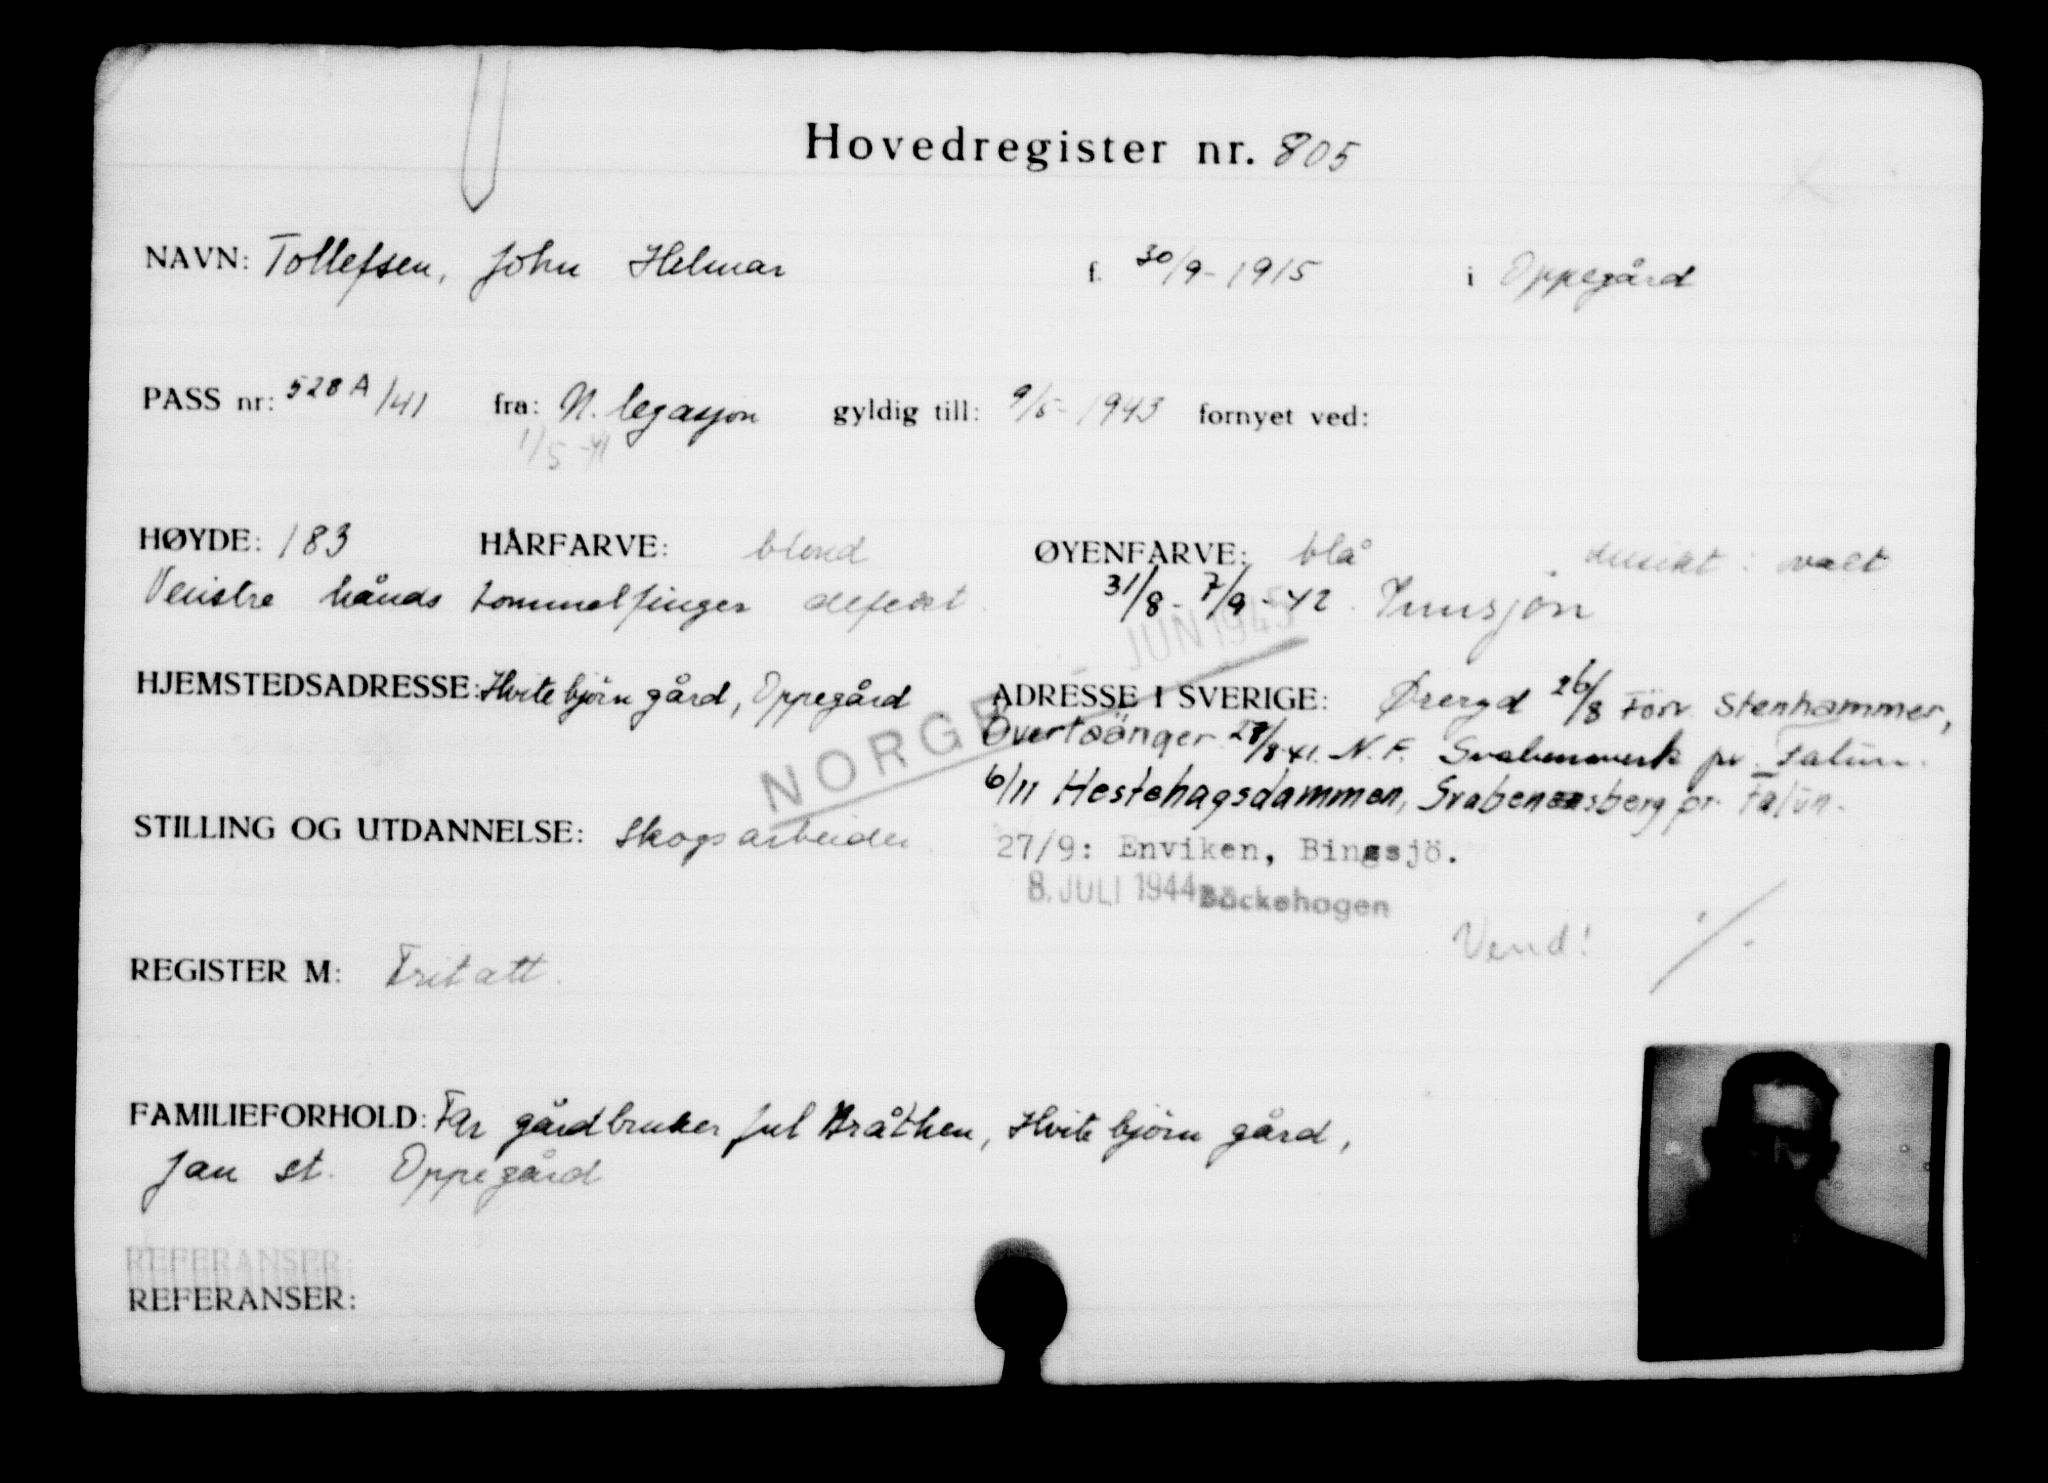 Hovedregister nr. 805
NAVN: Tollefsen, John Helmar f. 30/9-1915 i Oppegård
PASS nr: 528 A/41 fra: N. legasjon gyldig till: 9/5-1943 fornyet ved:
1/5-41
HØYDE: 183 HÅRFARVE: blond ØYENFARVE: blå ansikt: ovalt
Venstre hånds tommelfinger defekt. 31/8-7/9-42.
JUN 1945
HJEMSTEDSADRESSE: Hvitebjörn gård, Oppegård ADRESSE I SVERIGE: Öreryd 26/8 Förv. Stenhammer,
NORGE
28/8-41. N.F. pr. Falun.
6/11 Hestehagsdammen, pr. Falun.
STILLING OG UTDANNELSE: Skogsarbeider. 27/9: Enviken, Bingsjö.
8. JULI 1944 Bäckehagen
Vend! ./.
REGISTER M: Fritatt.
FAMILIEFORHOLD: Far gårdbruker Jul Bråthen, Hvitebjörn gård,
Jan st. Oppegård
REFERANSER:
REFERANSER: